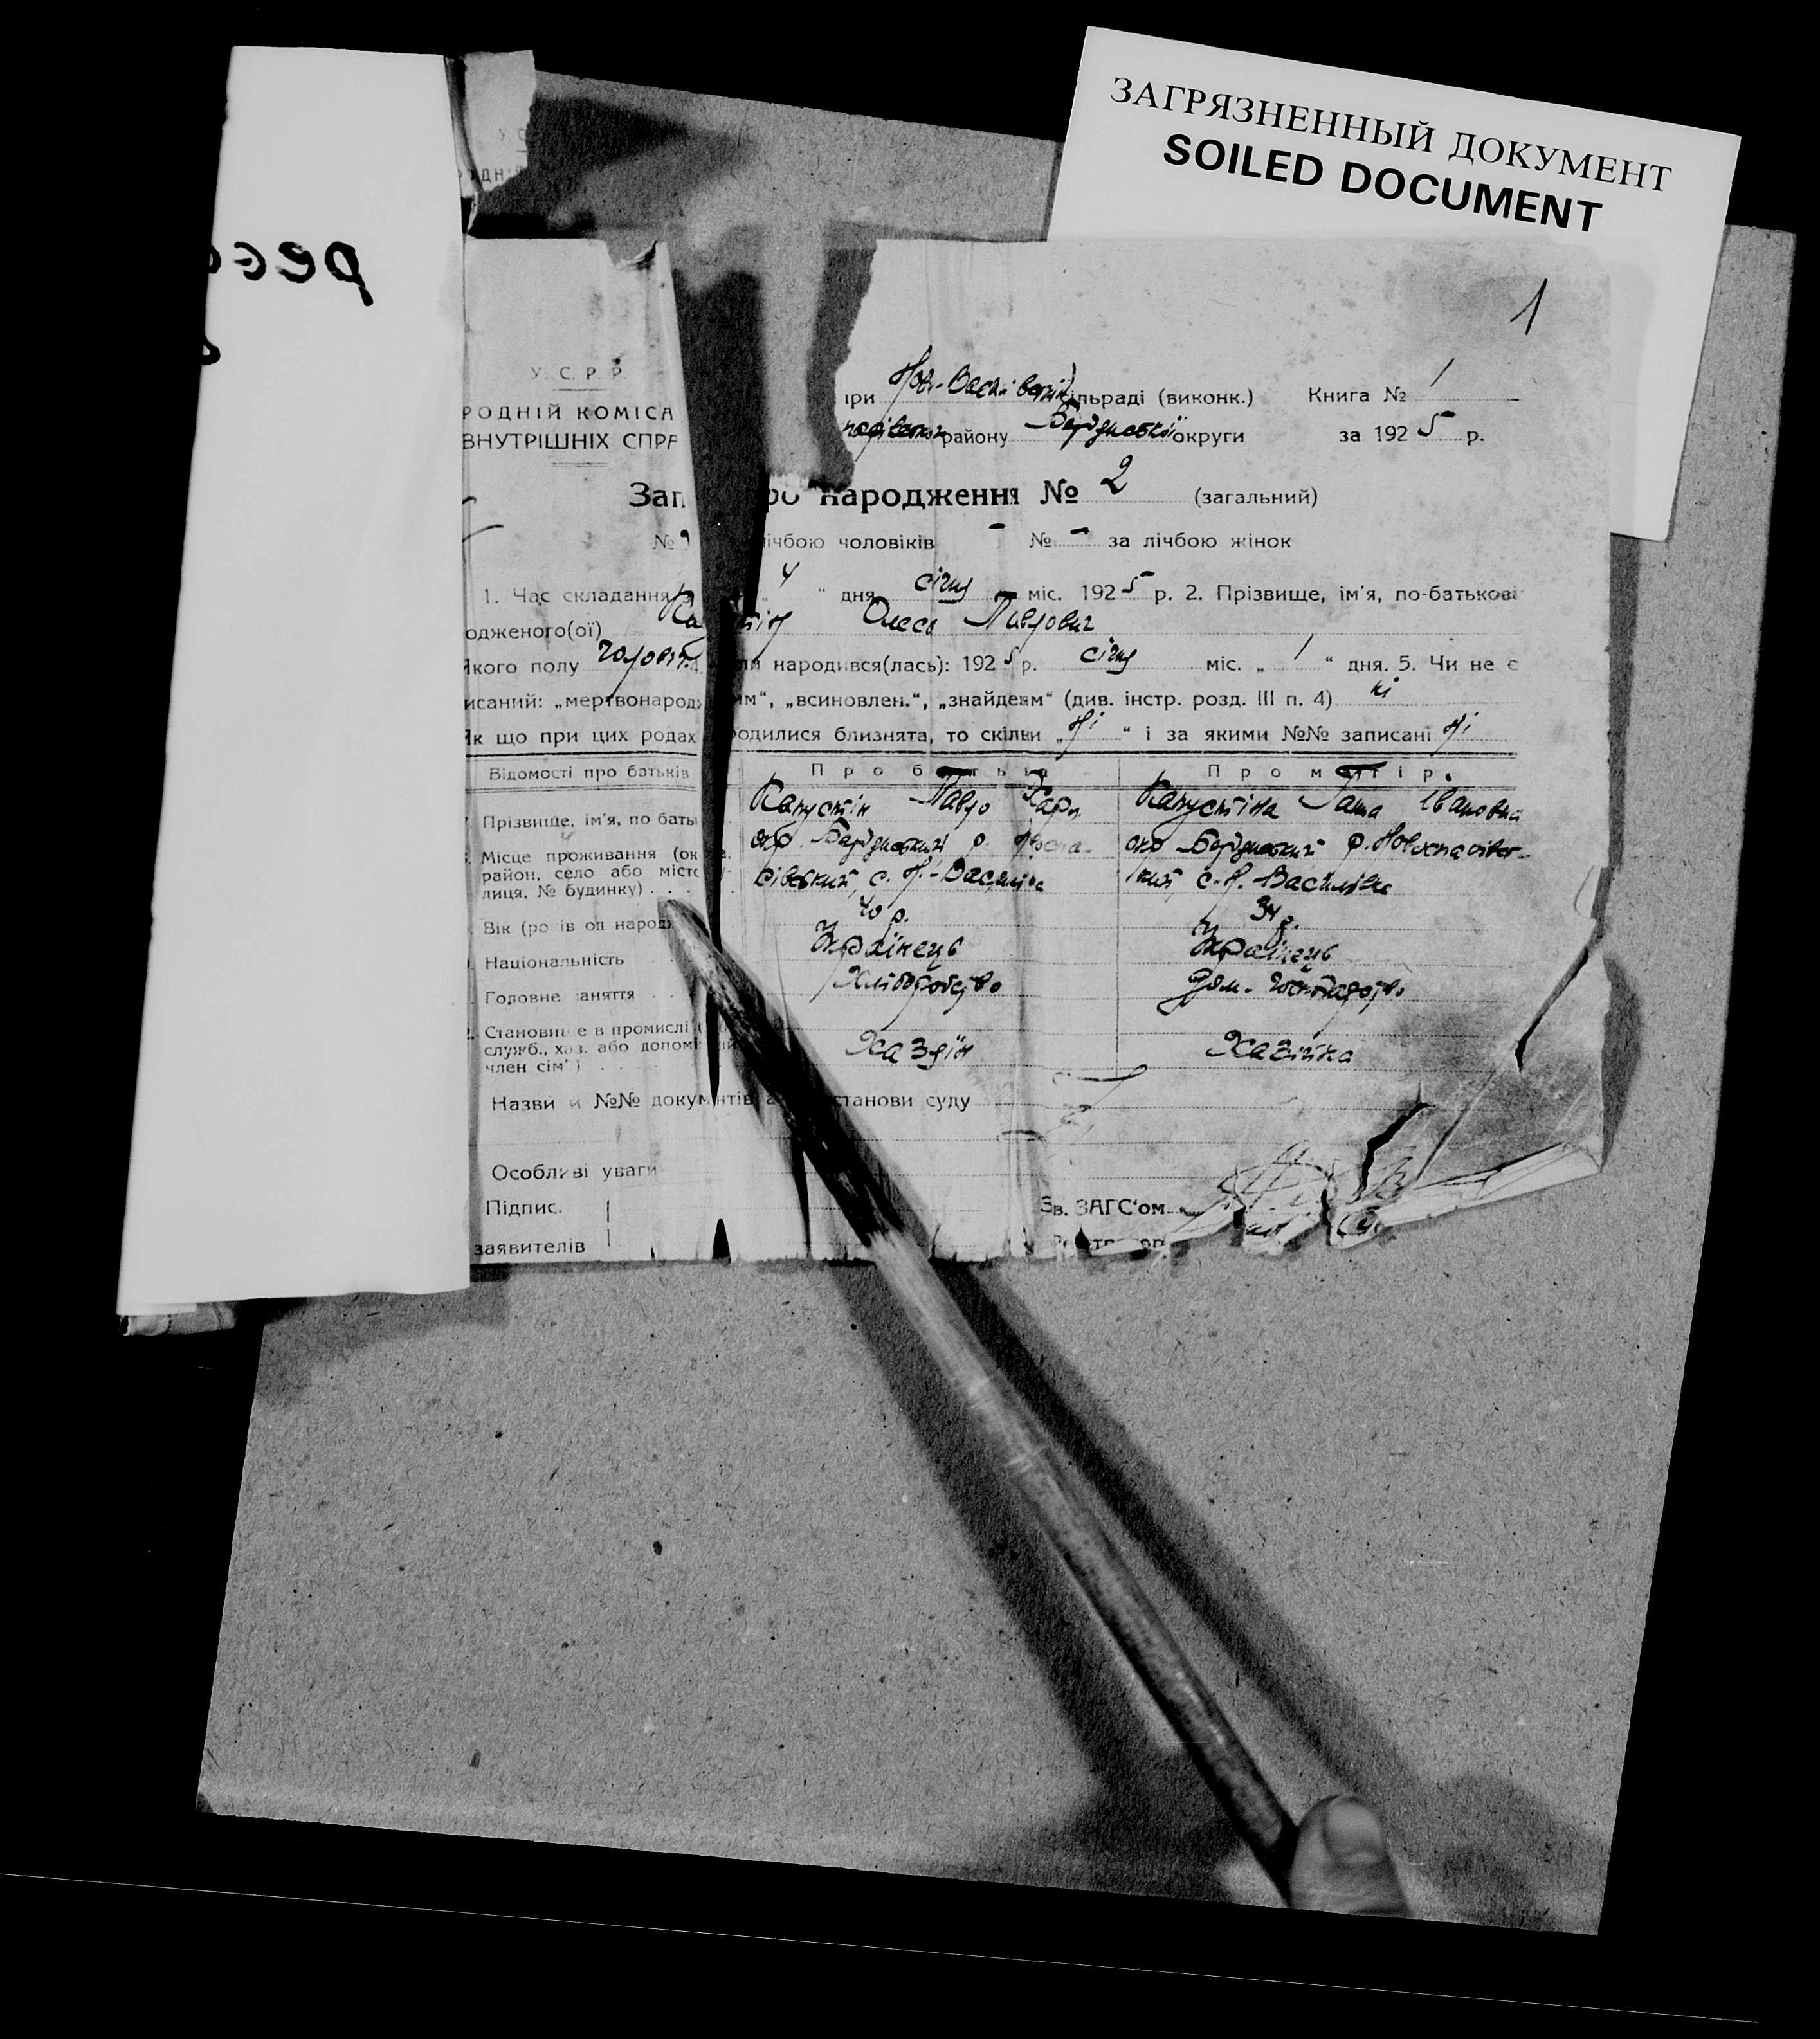 ЗАГРЯЗНЕННЫЙ ДОКУМЕНТ
SOILED DOCUMENT
1
У. С. Р. Р.
РОДНІЙ КОМІСА
ВНУТРІШНІХ СПРА
при Нов-Василівській сільраді (виконк.) Книга № 1
району Бердянської округи за 1925 р.
Зап ро народження № 2 (загальний)
№ лічбою чоловіків - № - за лічбою жінок
1. Час складання „ 4 “ дня січня міс. 1925 р. 2. Прізвище, ім'я, по-батькові
одженого(ої) Ка тін Олеса Павлович
якого полу чоловіч. ли народився(лась): 1925 р. січня міс. „ 1 “ дня. 5. Чи не є
исаний: „мертвонародж им“, „всиновлен.“, „знайденим“ (див. інстр. розд. III п. 4) ні
Як що при цих родах родилися близнята, то скільки „ ні “ і за якими №№ записані ні
Відомості про батьків Про батька Про матір
Прізвище, ім'я, по бать Капустін Павло Хар. Капустіна Гаша Івановна
Місце проживання (ок а, район, село або місто у- лиця, № будинку) окр. Бердянський р. Новоспа- сівський, с. Н.-Василівка окр Бердянський р. Новоспасівсь- кий, с. Н. Василівка
Вік (років од народж 40 р. 34 р.
Національність Українець Українець
Головне заняття Хліборобство Дом. господарство
Становище в промислі служб., хаз. або допоміжний член сім'ї) Хазяїн Хазяйка
Назви и №№ документів а станови суду
Особливі уваги
Підпис.
заявителів
Зв. ЗАГС'ом
Реєстратор